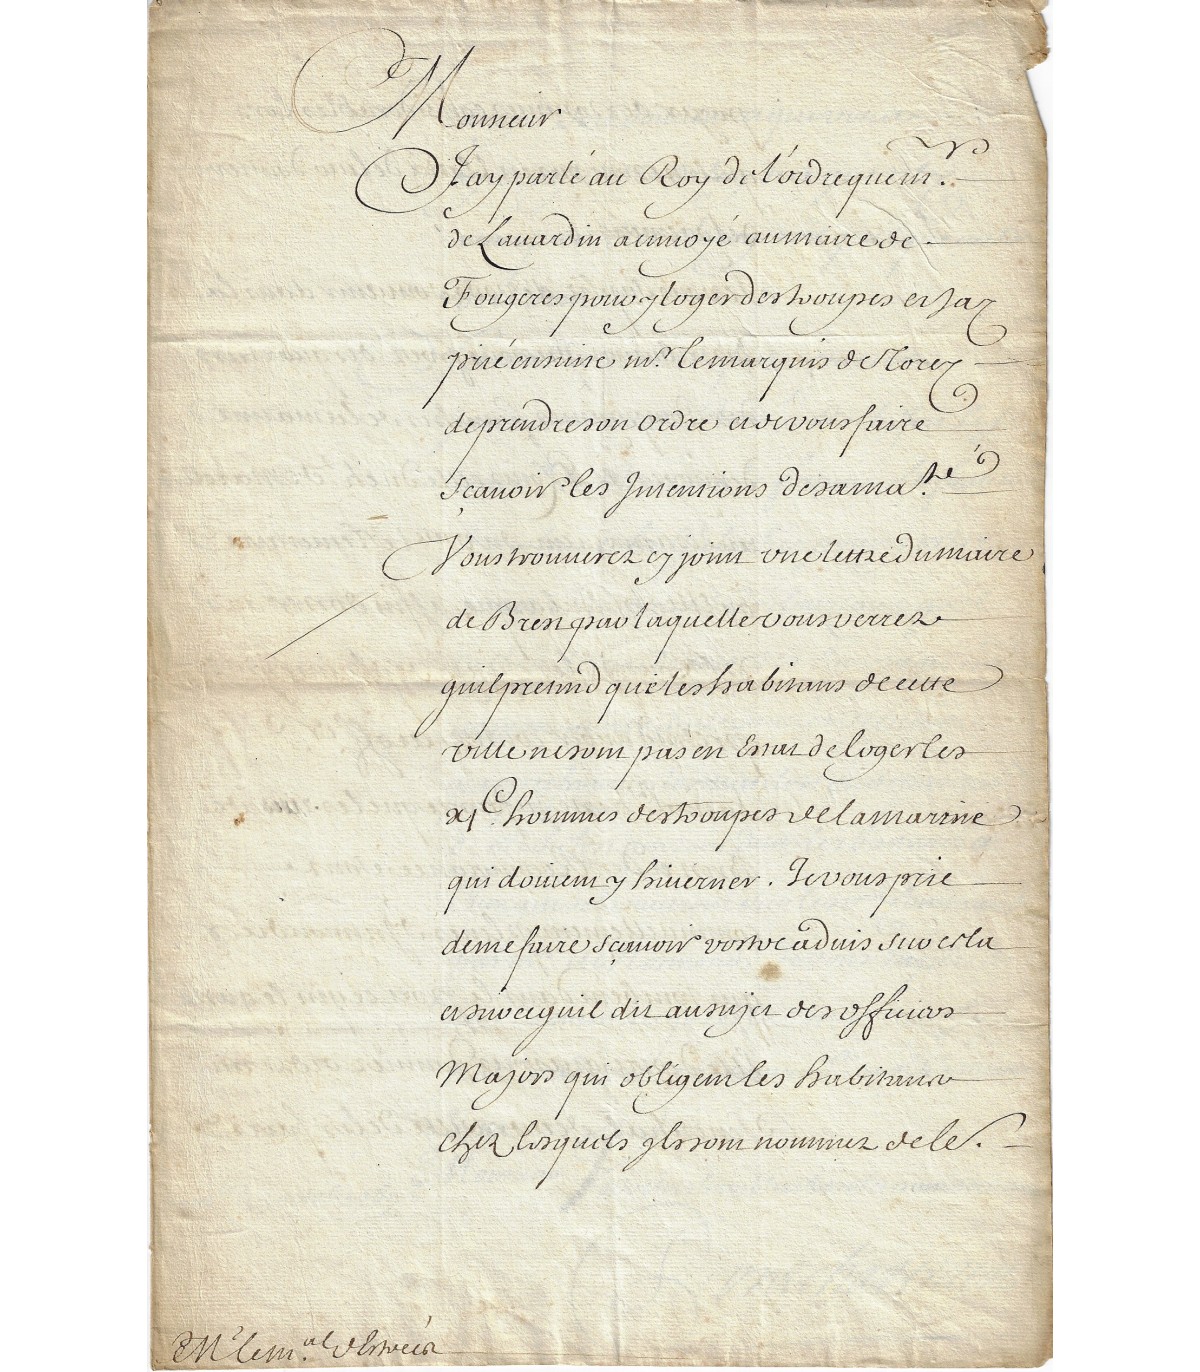 Monsieur
J'ay parlé au Roy de l'ordre que mr.
de Lavardin a envoyé au maire de
Fougeres pour y loger des troupes et j'ay
prié ensuite mr. le marquis de
de prendre son ordre et de vous faire
sçavoir les Intentions de sa ma.té
Vous trouverez cy joint une lettre du maire
de Brest par laquelle vous verrez
qu'il pretend que les habitans de cette
ville ne sont pas en Estat de loger les
xjC. hommes des troupes de la marine
qui doivent y hiverner. Je vous prie
de me faire sçavoir vostre advis sur cela
et sur ce qu'il dit au sujet des officiers
Majors qui obligent les habitans
chez lesquels ils sont nommez de le.
Mr. le m.al d'Estrées